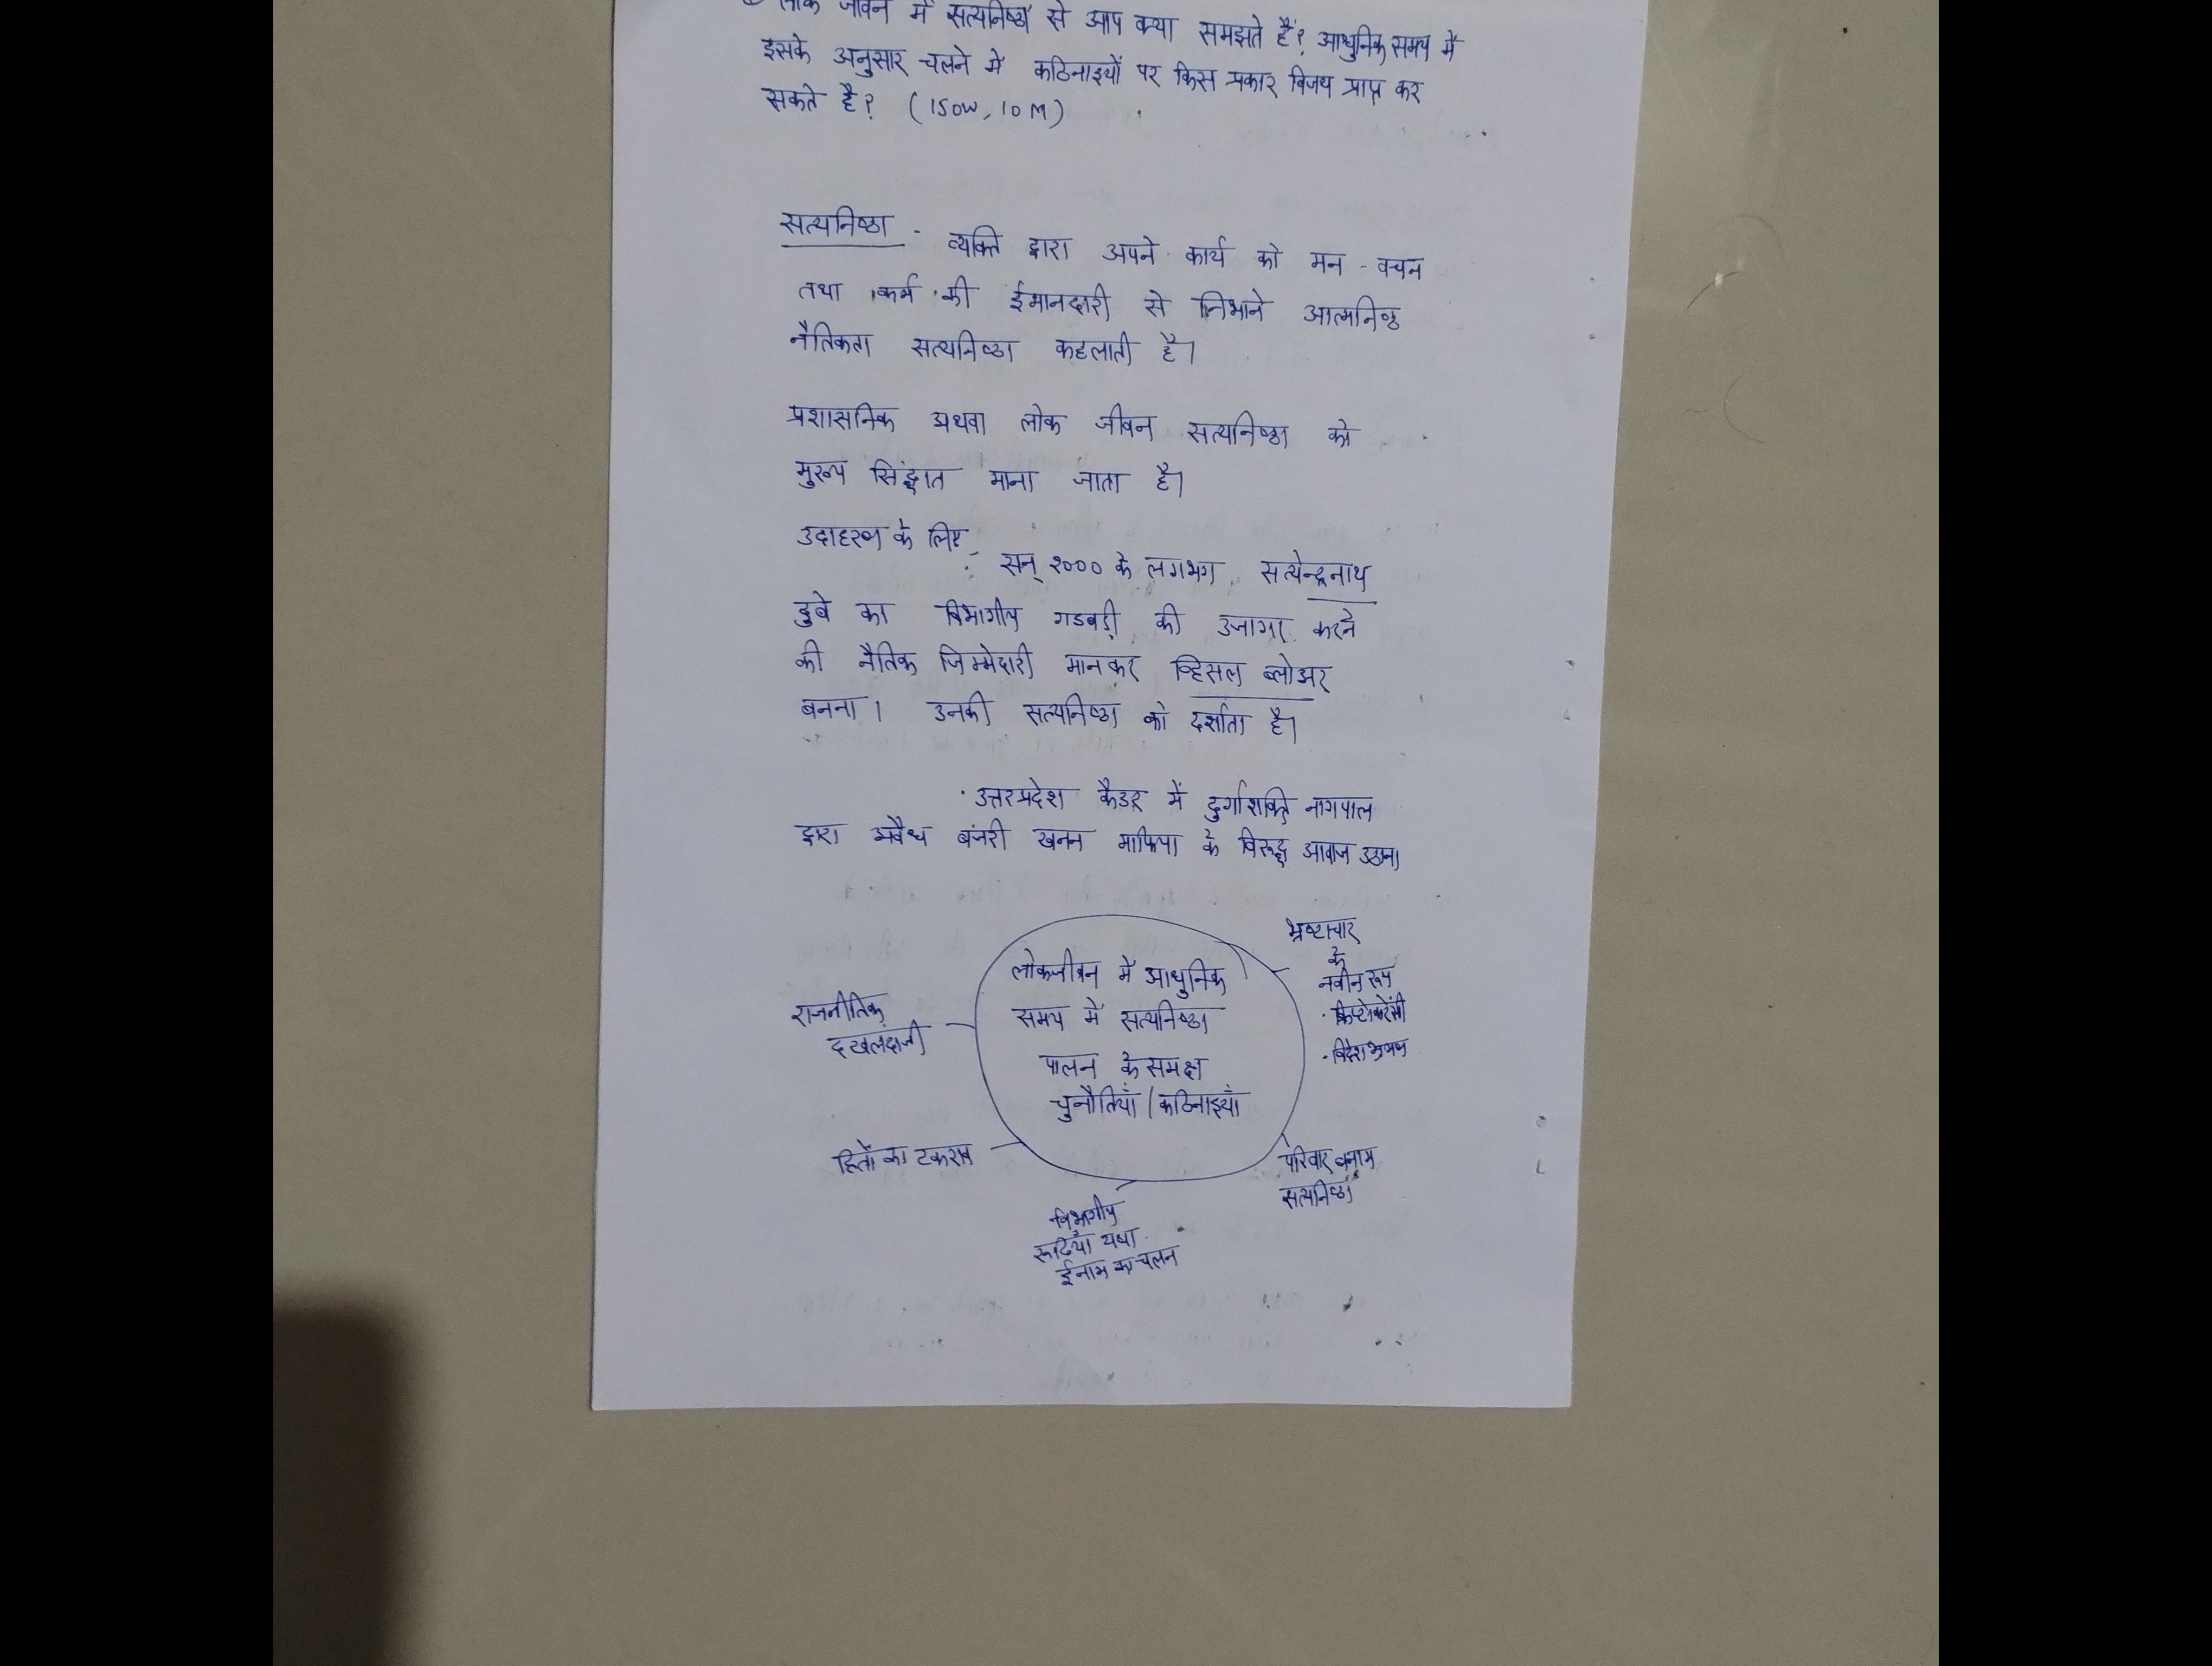 लोक जीवन में सत्यनिष्ठा से आप क्या समझते हैं? आधुनिक समय में
इसके अनुसार चलने में कठिनाइयों पर किस प्रकार विजय प्राप्त कर
सकते है? (150W, 10M)
सत्यनिष्ठा - व्यक्ति द्वारा अपने कार्य को मन - वचन
तथा कर्म की ईमानदारी से निभाने आत्मनिष्ठ
नैतिकता सत्यनिष्ठा कहलाती है।
प्रशासनिक अथवा लोक जीवन सत्यनिष्ठा को
मुख्य सिंद्धात माना जाता है।
उदाहरण के लिए
: सन् २००० के लगभग सत्येन्द्रनाथ
दुबे का विभागीय गडबड़ी की उजागर करने
की नैतिक जिम्मेदारी मानकर व्हिसल ब्लोअर
बनना। उनकी सत्यनिष्ठा को दर्साता है।
· उत्तरप्रदेश कैडर में दुर्गाशक्ति नागपाल
द्वारा अवैध बंजरी खनन माफिया के विरुद्ध आवाज उठाना
लोकजीवन में आधुनिक
समय में सत्यनिष्ठा
पालन के समक्ष
चुनौतियाँ / कठिनाइयाँ
भ्रष्टाचार
के
नवीन रूप
· क्रिप्टोकरेंसी
· विदेश भ्रमण
राजनीतिक
दखलंदाजी
हितों का टकराव
परिवार बनाम
सत्यनिष्ठा
विभागीय
रूढियाँ यथा
ईनाम का चलन